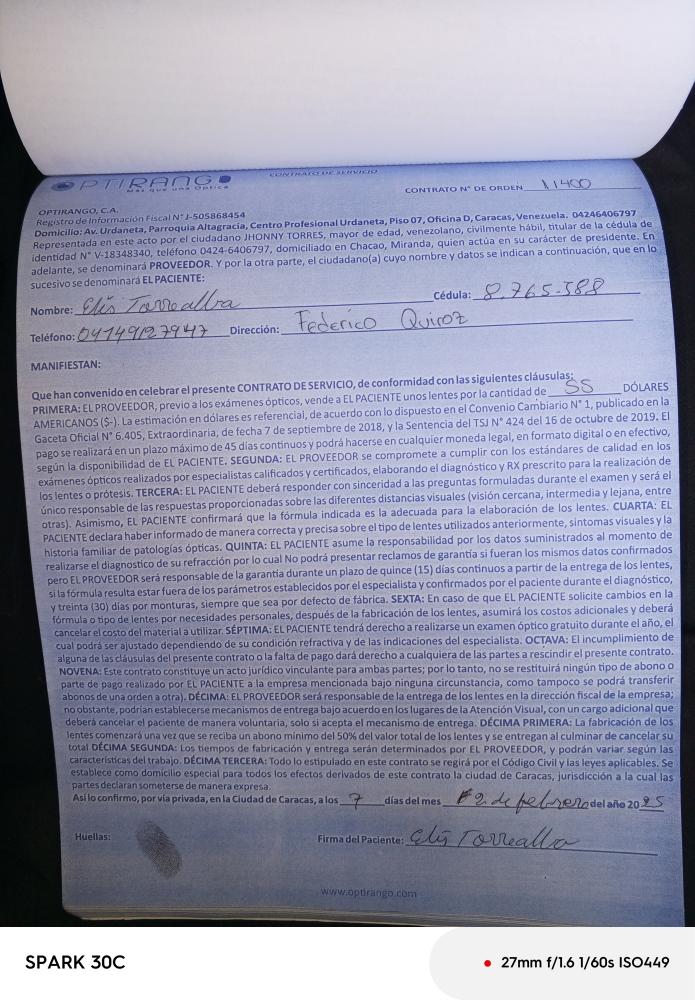 OPTIRANGO
Más que una Óptica
CONTRATO DE SERVICIO
CONTRATO N° DE ORDEN 11400
OPTIRANGO, C.A.
Registro de Información Fiscal N° J-505868454
Domicilio: Av. Urdaneta, Parroquia Altagracia, Centro Profesional Urdaneta, Piso 07, Oficina D, Caracas, Venezuela. 04246406797
Representada en este acto por el ciudadano JHONNY TORRES, mayor de edad, venezolano, civilmente hábil, titular de la cédula de
identidad N° V-18348340, teléfono 0424-6406797, domiciliado en Chacao, Miranda, quien actúa en su carácter de presidente. En
adelante, se denominará PROVEEDOR. Y por la otra parte, el ciudadano(a) cuyo nombre y datos se indican a continuación, que en lo
sucesivo se denominará EL PACIENTE:
Nombre: Elis Torrealba Cédula: 8.765.588
Teléfono: 04149127947 Dirección: Federico Quiroz
MANIFIESTAN:
Que han convenido en celebrar el presente CONTRATO DE SERVICIO, de conformidad con las siguientes cláusulas:
PRIMERA: EL PROVEEDOR, previo a los exámenes ópticos, vende a EL PACIENTE unos lentes por la cantidad de 55 DÓLARES
AMERICANOS ($-). La estimación en dólares es referencial, de acuerdo con lo dispuesto en el Convenio Cambiario N° 1, publicado en la
Gaceta Oficial N° 6.405, Extraordinaria, de fecha 7 de septiembre de 2018, y la Sentencia del TSJ N° 424 del 16 de octubre de 2019. El
pago se realizará en un plazo máximo de 45 días continuos y podrá hacerse en cualquier moneda legal, en formato digital o en efectivo,
según la disponibilidad de EL PACIENTE. SEGUNDA: EL PROVEEDOR se compromete a cumplir con los estándares de calidad en los
exámenes ópticos realizados por especialistas calificados y certificados, elaborando el diagnóstico y RX prescrito para la realización de
los lentes o prótesis. TERCERA: EL PACIENTE deberá responder con sinceridad a las preguntas formuladas durante el examen y será el
único responsable de las respuestas proporcionadas sobre las diferentes distancias visuales (visión cercana, intermedia y lejana, entre
otras). Asimismo, EL PACIENTE confirmará que la fórmula indicada es la adecuada para la elaboración de los lentes. CUARTA: EL
PACIENTE declara haber informado de manera correcta y precisa sobre el tipo de lentes utilizados anteriormente, sintomas visuales y la
historia familiar de patologías ópticas. QUINTA: EL PACIENTE asume la responsabilidad por los datos suministrados al momento de
realizarse el diagnostico de su refracción por lo cual No podrá presentar reclamos de garantía si fueran los mismos datos confirmados
pero EL PROVEEDOR será responsable de la garantía durante un plazo de quince (15) días continuos a partir de la entrega de los lentes,
si la fórmula resulta estar fuera de los parámetros establecidos por el especialista y confirmados por el paciente durante el diagnóstico,
y treinta (30) días por monturas, siempre que sea por defecto de fábrica. SEXTA: En caso de que EL PACIENTE solicite cambios en la
fórmula o tipo de lentes por necesidades personales, después de la fabricación de los lentes, asumirá los costos adicionales y deberá
cancelar el costo del material a utilizar. SÉPTIMA: EL PACIENTE tendrá derecho a realizarse un examen óptico gratuito durante el año, el
cual podrá ser ajustado dependiendo de su condición refractiva y de las indicaciones del especialista. OCTAVA: El incumplimiento de
alguna de las cláusulas del presente contrato o la falta de pago dará derecho a cualquiera de las partes a rescindir el presente contrato.
NOVENA: Este contrato constituye un acto jurídico vinculante para ambas partes; por lo tanto, no se restituirá ningún tipo de abono o
parte de pago realizado por EL PACIENTE a la empresa mencionada bajo ninguna circunstancia, como tampoco se podrá transferir
abonos de una orden a otra). DÉCIMA: EL PROVEEDOR será responsable de la entrega de los lentes en la dirección fiscal de la empresa;
no obstante, podrían establecerse mecanismos de entrega bajo acuerdo en los lugares de la Atención Visual, con un cargo adicional que
deberá cancelar el paciente de manera voluntaria, solo si acepta el mecanismo de entrega. DÉCIMA PRIMERA: La fabricación de los
lentes comenzará una vez que se reciba un abono mínimo del 50% del valor total de los lentes y se entregan al culminar de cancelar su
total DÉCIMA SEGUNDA: Los tiempos de fabricación y entrega serán determinados por EL PROVEEDOR, y podrán variar según las
características del trabajo. DÉCIMA TERCERA: Todo lo estipulado en este contrato se regirá por el Código Civil y las leyes aplicables. Se
establece como domicilio especial para todos los efectos derivados de este contrato la ciudad de Caracas, jurisdicción a la cual las
partes declaran someterse de manera expresa.
Así lo confirmo, por vía privada, en la Ciudad de Caracas, a los 7 días del mes 2 de febrero del año 2025
Huellas: Firma del Paciente: Elis Torrealba
www.optirango.com
SPARK 30C 27mm f/1.6 1/60s ISO449